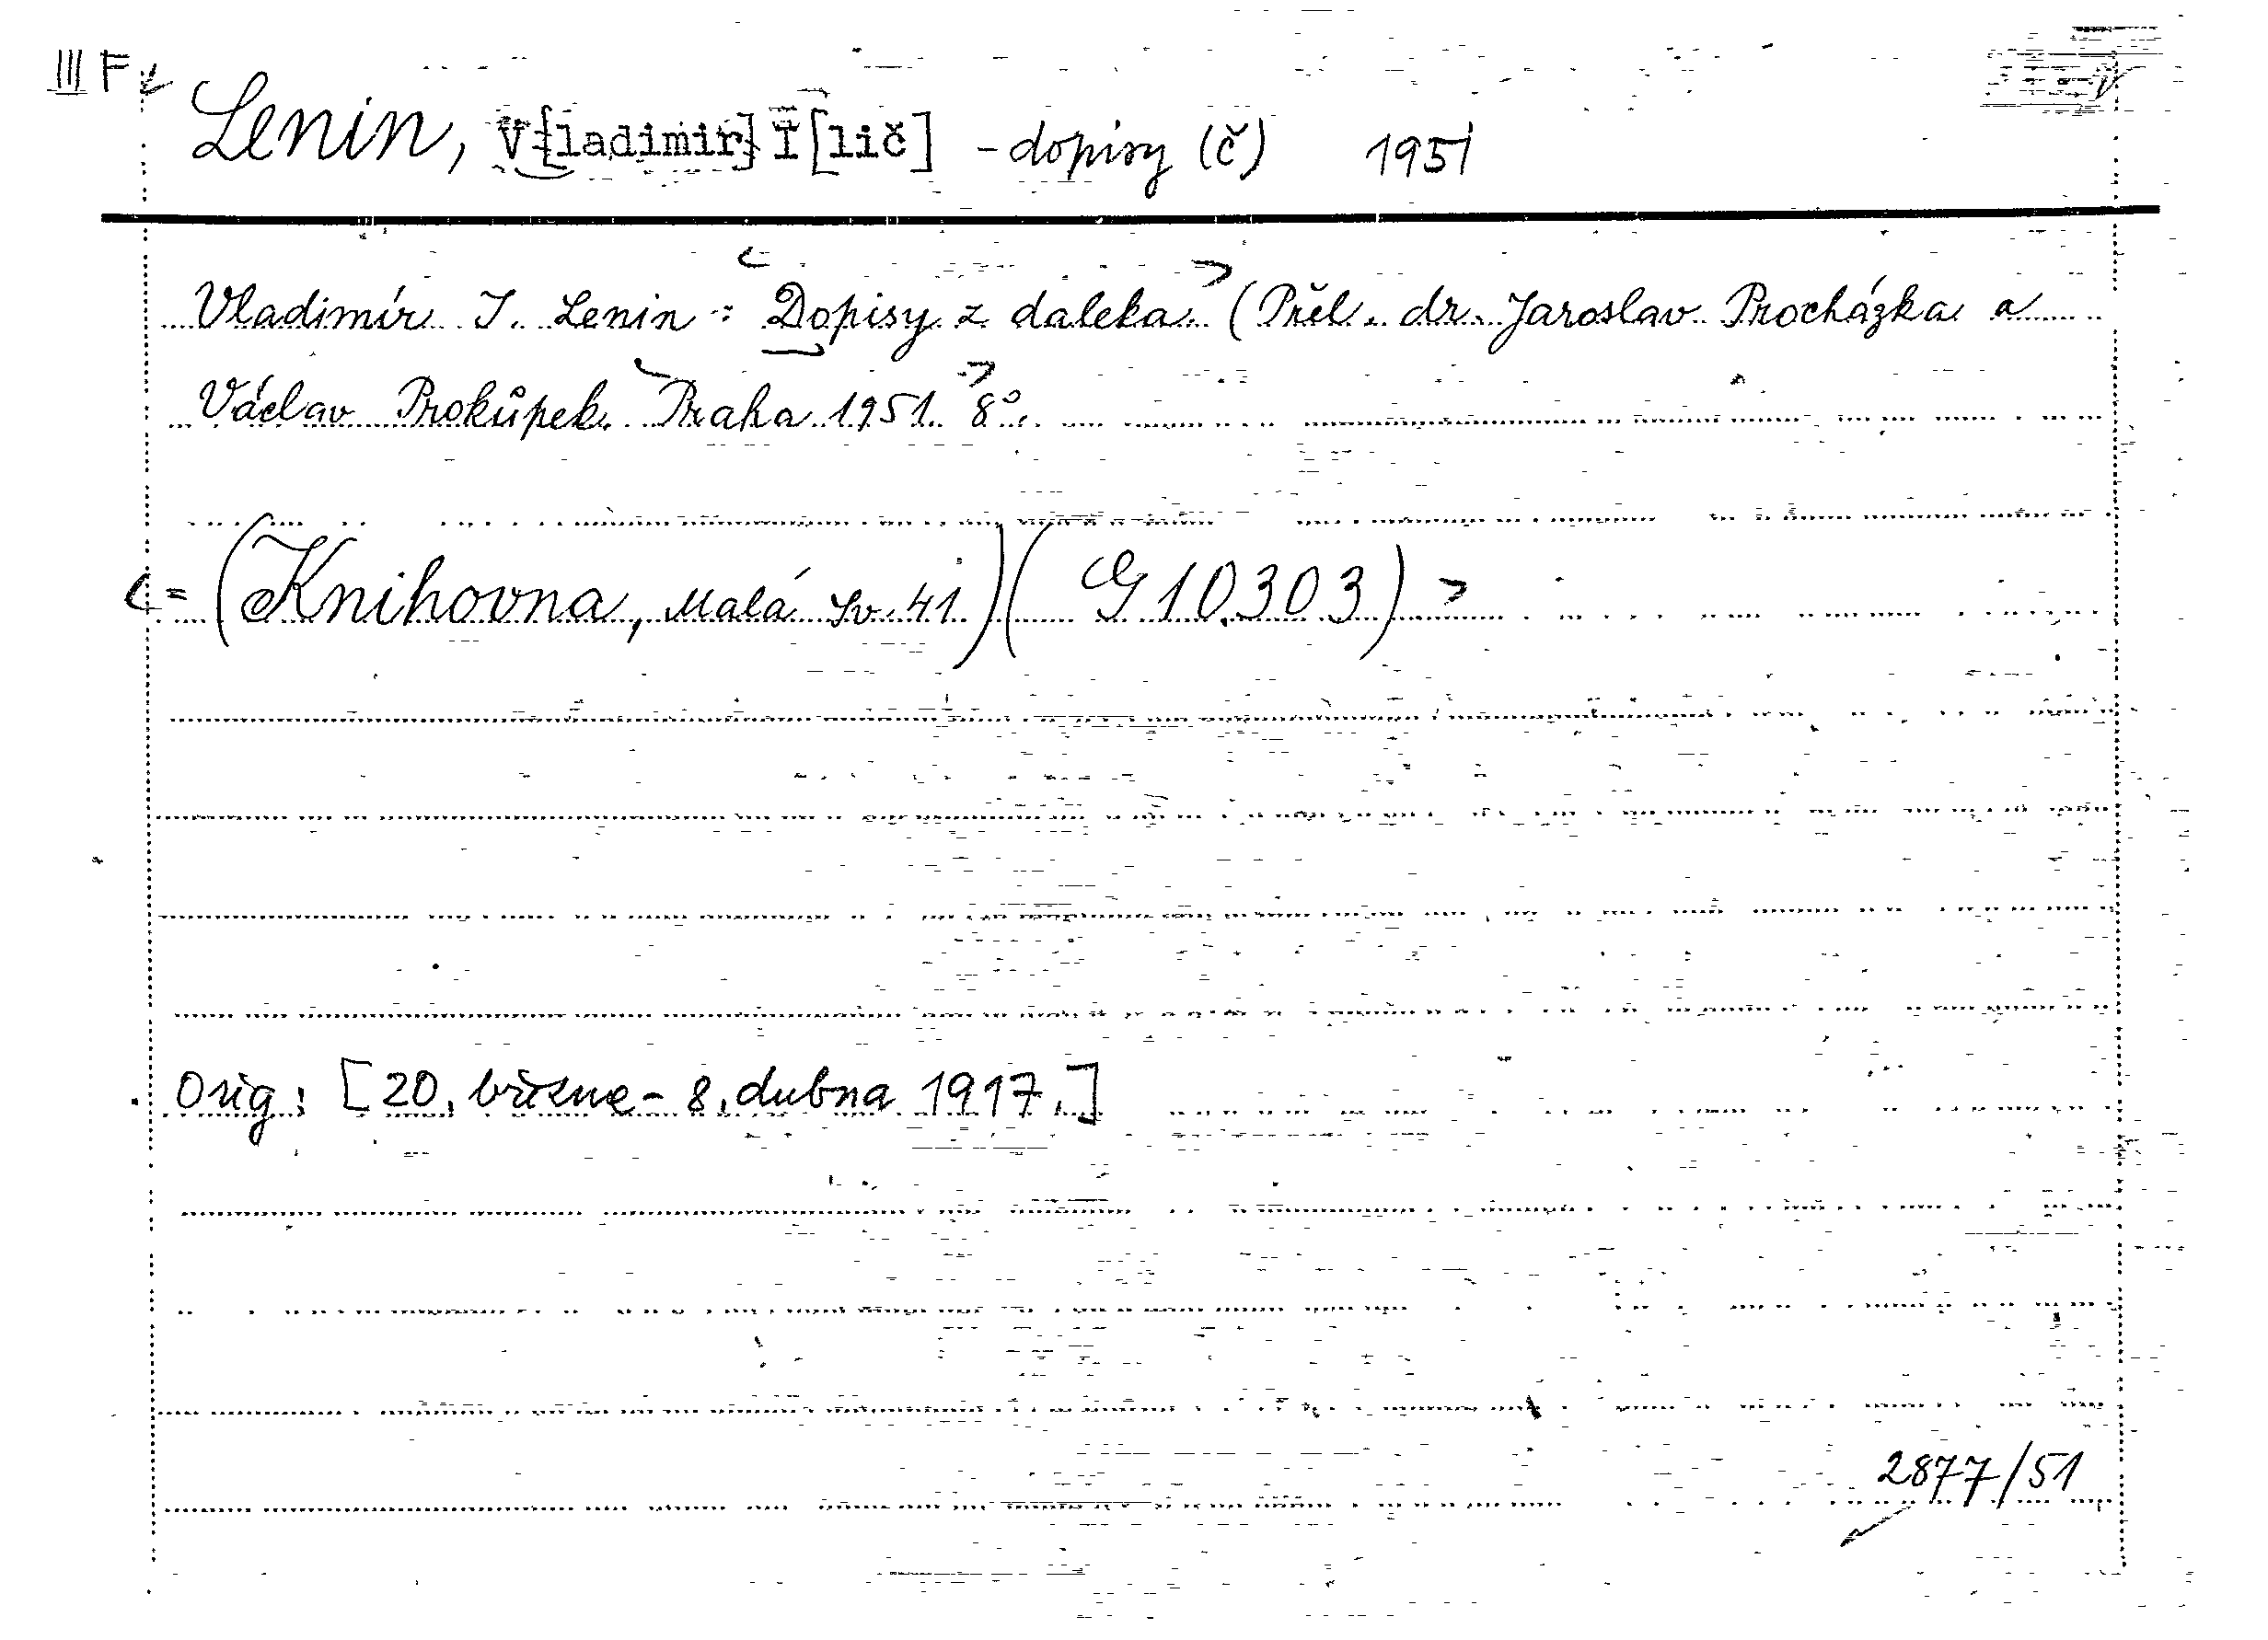 III F
Lenin, V[ladimir] I[lič] - dopisy (č) 1951
Vladimír I. Lenin: Dopisy z daleka. (Přel. dr. Jaroslav Procházka a
Václav Prokůpek. Praha 1951. 8°.
= (Knihovna, Malá sv. 41.) (G 10.303)
Orig: [20. března - 8. dubna 1917.]
2877/51